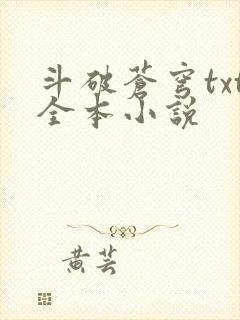 斗破蒼穹txt
全本小說
黄芸